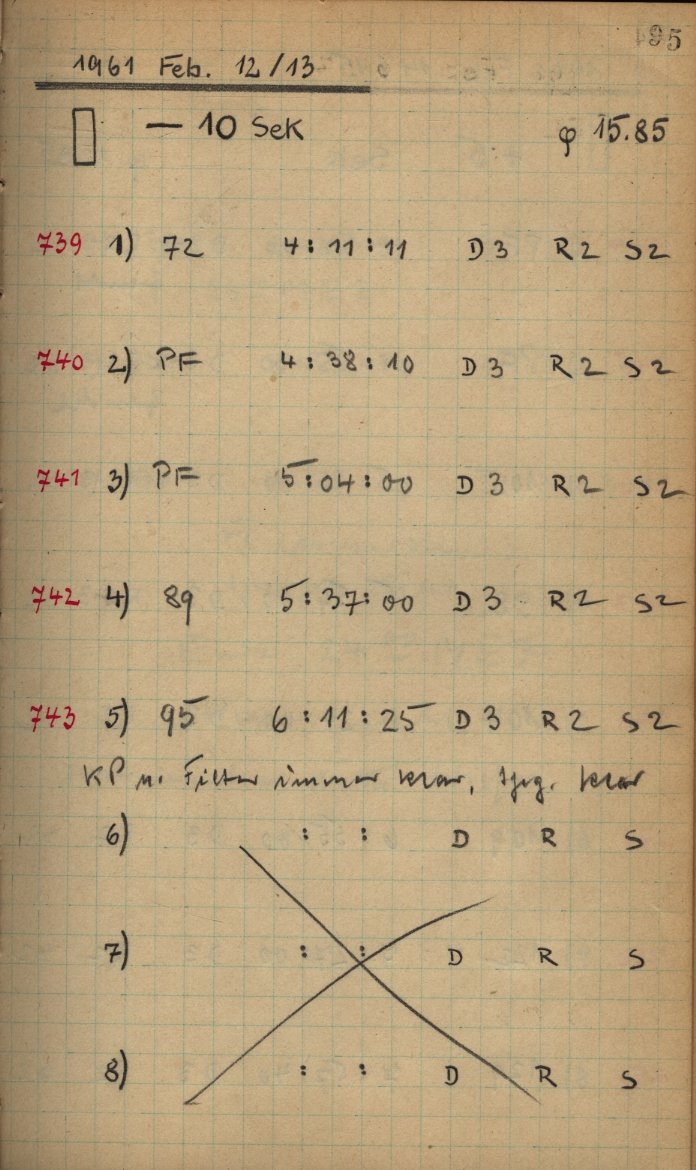 95
1961 Feb. 12/13
— 10 Sek φ 15.85
739 1) 72 4:11:11 D3 R2 S2
740 2) PF 4:38:10 D3 R2 S2
741 3) PF 5:04:00 D3 R2 S2
742 4) 89 5:37:00 D3 R2 S2
743 5) 95 6:11:25 D3 R2 S2
KP u. Filter immer klar, klar
6) : : D R S
7) : : D R S
8) : : D R S